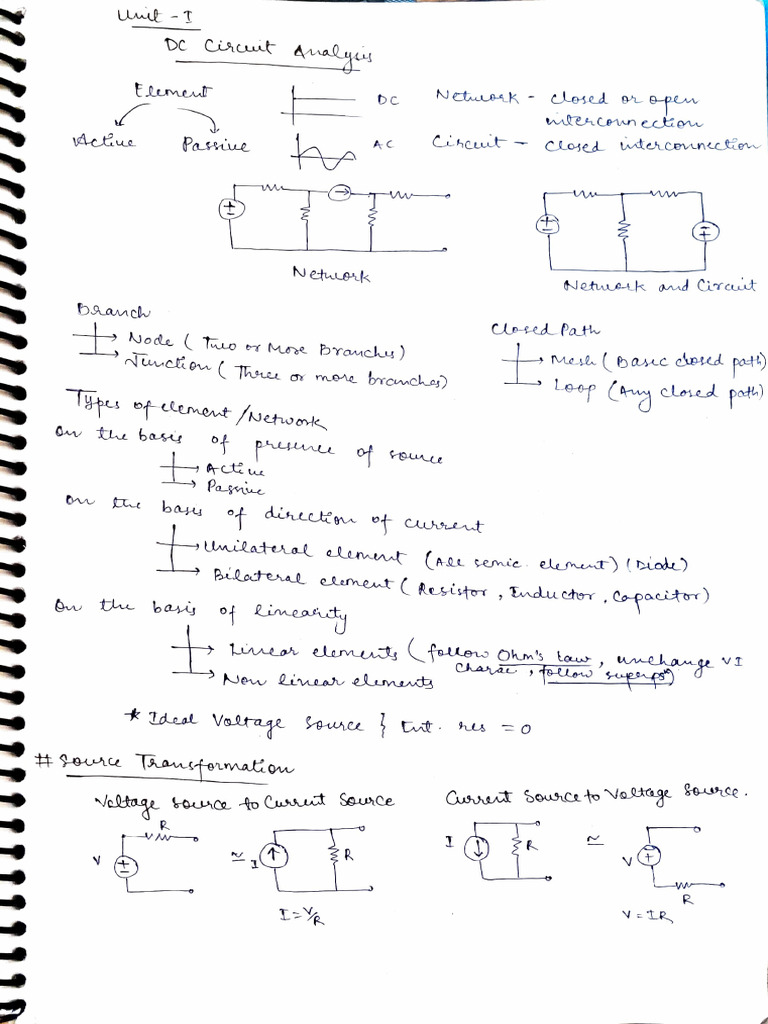 Unit - I
DC Circuit Analysis
Element
Active Passive
DC
AC
Network - closed or open
interconnection
Circuit - closed interconnection
Network
Network and Circuit
Branch
Node ( Two or More Branches)
Junction ( Three or more branches)
Closed Path
Mesh ( Basic closed path)
Loop (Any closed path)
Types of element / Network
On the basis of presence of source
Active
Passive
On the basis of direction of current
Unilateral element (All semic. element) (Diode)
Bilateral element ( Resistor, Inductor, Capacitor)
On the basis of linearity
Linear elements ( follow Ohm's Law, unchange VI
charac, follow superpsn)
Non linear elements
* Ideal Voltage Source } Int. res = 0
# Source Transformation
Voltage source to Current Source
R
V
±
≃
I
↑
R
I = V/R
Current Source to Voltage Source.
I
↓
R
≃
V
+
R
V = IR